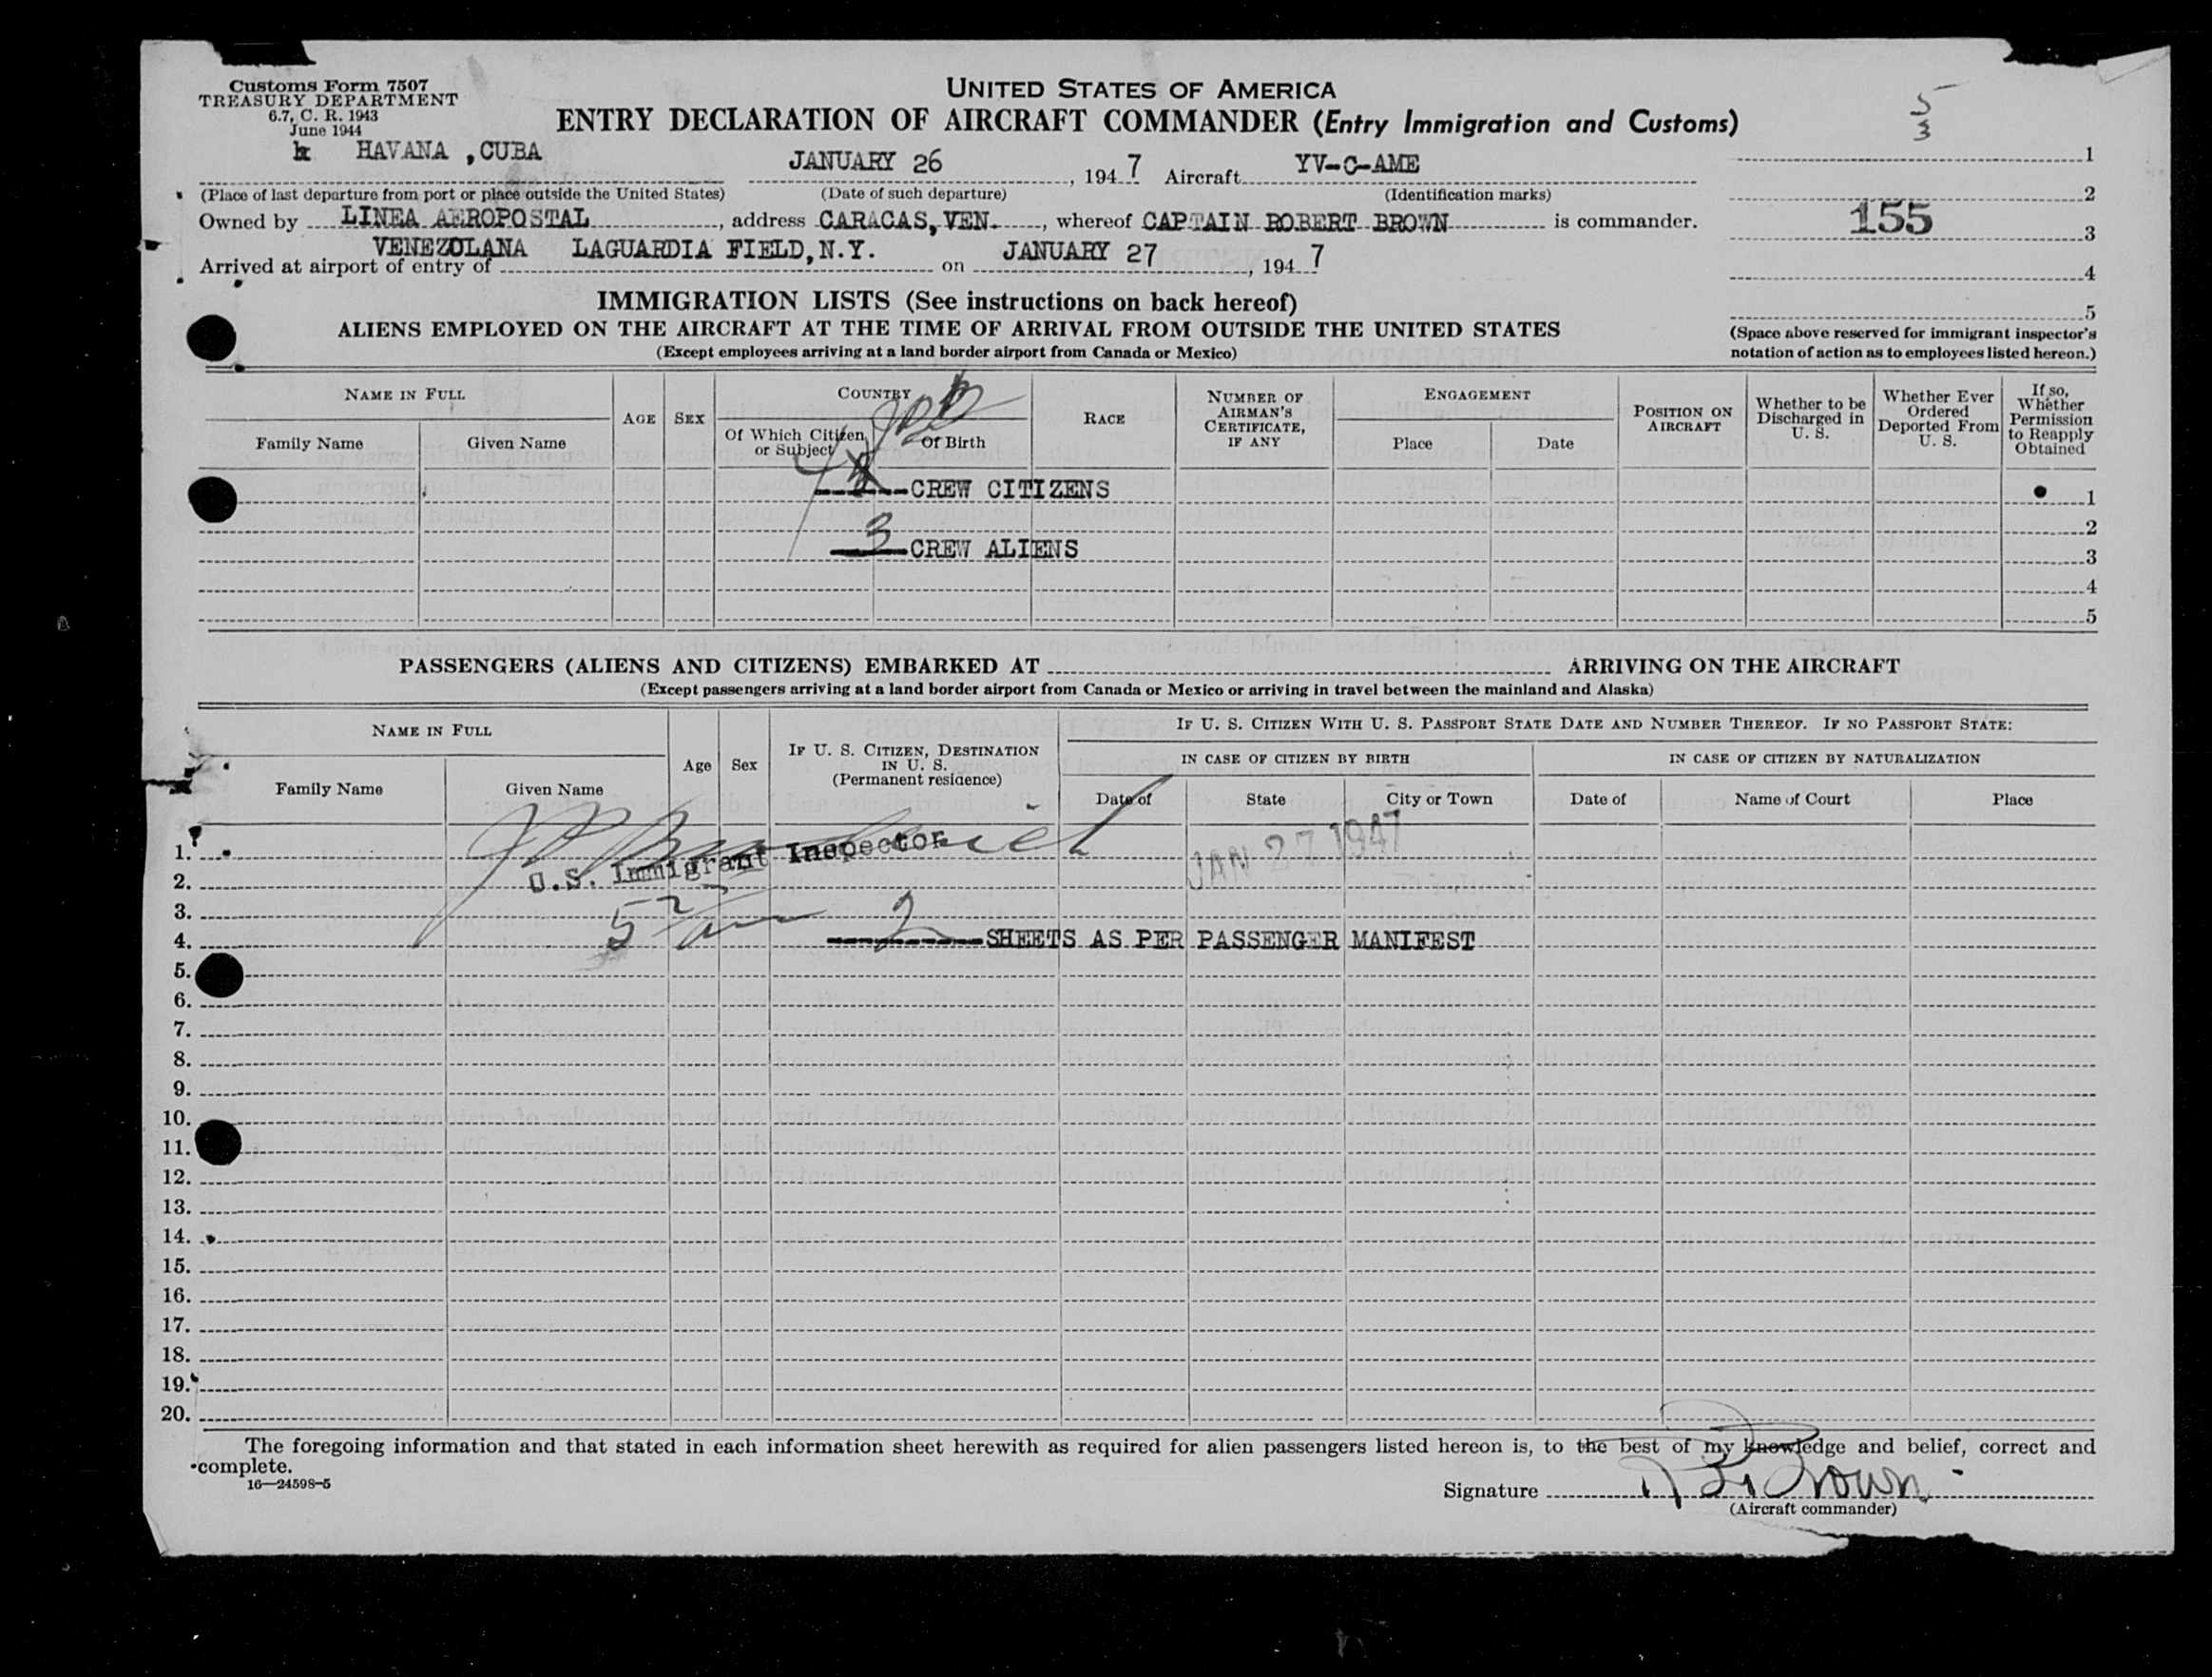 Customs Form 7507
TREASURY DEPARTMENT
6.7, C. R. 1943
June 1944
UNITED STATES OF AMERICA
ENTRY DECLARATION OF AIRCRAFT COMMANDER (Entry Immigration and Customs)
5
3
HAVANA ,CUBA JANUARY 26, 1947 Aircraft YV-C-AME
1
(Place of last departure from port or place outside the United States) (Date of such departure) (Identification marks)
2
Owned by LINEA AEROPOSTAL, address CARACAS, VEN., whereof CAPTAIN ROBERT BROWN is commander.
155
3
VENEZOLANA LAGUARDIA FIELD, N.Y. JANUARY 27
Arrived at airport of entry of on , 1947
4
5
IMMIGRATION LISTS (See instructions on back hereof)
ALIENS EMPLOYED ON THE AIRCRAFT AT THE TIME OF ARRIVAL FROM OUTSIDE THE UNITED STATES
(Except employees arriving at a land border airport from Canada or Mexico)
(Space above reserved for immigrant inspector's
notation of action as to employees listed hereon.)
NAME IN FULL
Family Name
Given Name
AGE
SEX
COUNTRY
Of Which Citizen
or Subject
Of Birth
RACE
NUMBER OF
AIRMAN'S
CERTIFICATE,
IF ANY
ENGAGEMENT
Place
Date
POSITION ON
AIRCRAFT
Whether to be
Discharged in
U. S.
Whether Ever
Ordered
Deported From
U. S.
If so,
Whether
Permission
to Reapply
Obtained
4
CREW CITIZENS
1
2
3 CREW ALIENS
3
4
5
PASSENGERS (ALIENS AND CITIZENS) EMBARKED AT ARRIVING ON THE AIRCRAFT
(Except passengers arriving at a land border airport from Canada or Mexico or arriving in travel between the mainland and Alaska)
NAME IN FULL
Family Name
Given Name
Age
Sex
IF U. S. CITIZEN, DESTINATION
IN U. S.
(Permanent residence)
IF U. S. CITIZEN WITH U. S. PASSPORT STATE DATE AND NUMBER THEREOF. IF NO PASSPORT STATE:
IN CASE OF CITIZEN BY BIRTH
IN CASE OF CITIZEN BY NATURALIZATION
Date of
State
City or Town
Date of
Name of Court
Place
1.
U.S. Immigrant Inspector
JAN 27 1947
2.
3.
4.
2 SHEETS AS PER PASSENGER MANIFEST
5.
6.
7.
8.
9.
10.
11.
12.
13.
14.
15.
16.
17.
18.
19.
20.
The foregoing information and that stated in each information sheet herewith as required for alien passengers listed hereon is, to the best of my knowledge and belief, correct and
complete.
16—24598-5
Signature R Brown
(Aircraft commander)